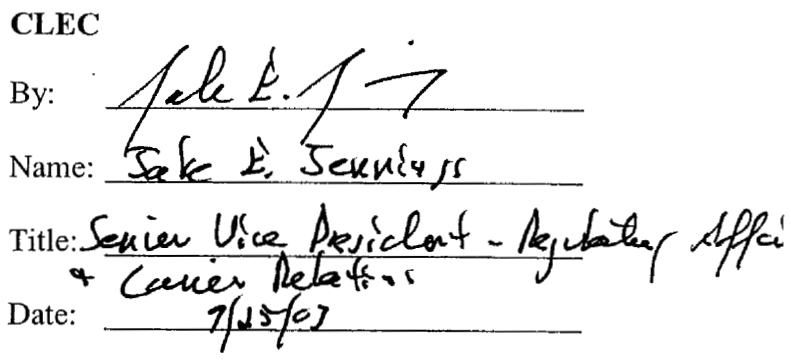 CLEC
By: Jake E. J
Name: Jake E. Jennings
Title: Senior Vice President - Regulatory Affai
& Carrier Relations
Date: 7/25/07